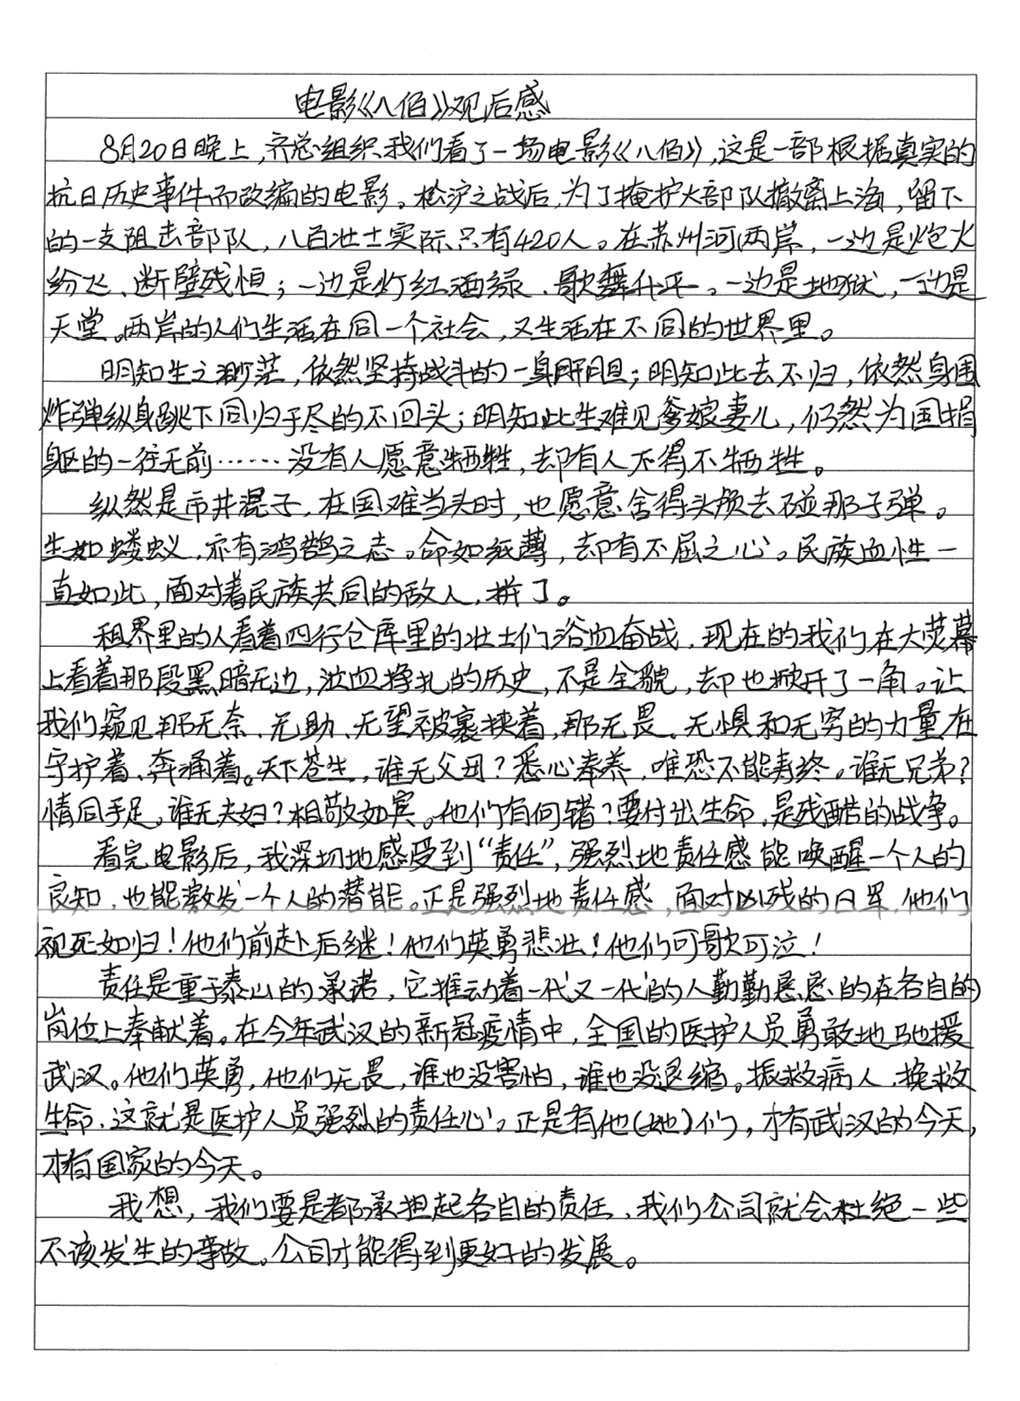 电影《八佰》观后感
8月20日晚上,齐总组织我们看了一场电影《八佰》,这是一部根据真实的
抗日历史事件而改编的电影。松沪之战后,为了掩护大部队撤离上海,留下
的一支阻击部队,八百壮士实际只有420人。在苏州河两岸,一边是炮火
纷飞、断壁残恒;一边是灯红酒绿、歌舞升平。一边是地狱,一边是
天堂。两岸的人们生活在同一个社会,又生活在不同的世界里。
明知生之渺茫,依然坚持战斗的一身肝胆;明知此去不归,依然身围
炸弹纵身跳下同归于尽的不回头;明知此生难见爹娘妻儿,仍然为国捐
躯的一往无前……没有人愿意牺牲,却有人不得不牺牲。
纵然是市井混子,在国难当头时,也愿意舍得头颅去碰那子弹。
生如蝼蚁,亦有鸿鹄之志。命如纸薄,却有不屈之心。民族血性一
直如此,面对着民族共同的敌人,拼了。
租界里的人看着四行仓库里的壮士们浴血奋战,现在的我们在大荧幕
上看着那段黑暗无边,泣血挣扎的历史,不是全貌,却也掀开了一角。让
我们窥见那无奈、无助、无望被裹挟着,那无畏、无惧和无穷的力量在
守护着、奔涌着。天下苍生,谁无父母?悉心奉养,唯恐不能寿终。谁无兄弟?
情同手足。谁无夫妇?相敬如宾。他们有何错?要付出生命,是残酷的战争。
看完电影后,我深切地感受到“责任”,强烈地责任感能唤醒一个人的
良知,也能激发一个人的潜能。正是强烈地责任感,面对凶残的日军,他们
视死如归!他们前赴后继!他们英勇悲壮!他们可歌可泣!
责任是重于泰山的承诺,它推动着一代又一代的人勤勤恳恳的在各自的
岗位上奉献着。在今年武汉的新冠疫情中,全国的医护人员勇敢地驰援
武汉。他们英勇,他们无畏,谁也没害怕,谁也没退缩。振救病人,挽救
生命,这就是医护人员强烈的责任心。正是有他(她)们,才有武汉的今天,
才有国家的今天。
我想,我们要是都承担起各自的责任,我们公司就会杜绝一些
不该发生的事故。公司才能得到更好的发展。